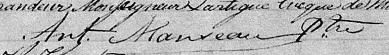 Grandeur Monseigneur Lartigue Evêque de
Ant. Manseau Ptre